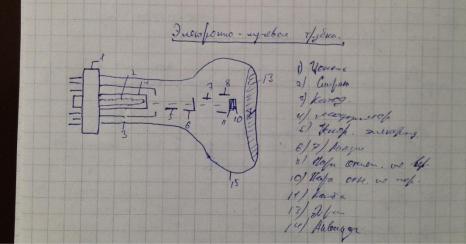 Электронно-лучевая трубка.
1
2
4
3
5
6
7
8
9
10
13
15
1) Цоколь
2) Спираль
3) Катод
4) модулятор
5) Ускор. электрод
6) 7) Аноды
9) Пара откл. по вер.
10) Пара откл. по гор.
11) Колба
13) Экран
14) Аквадаг